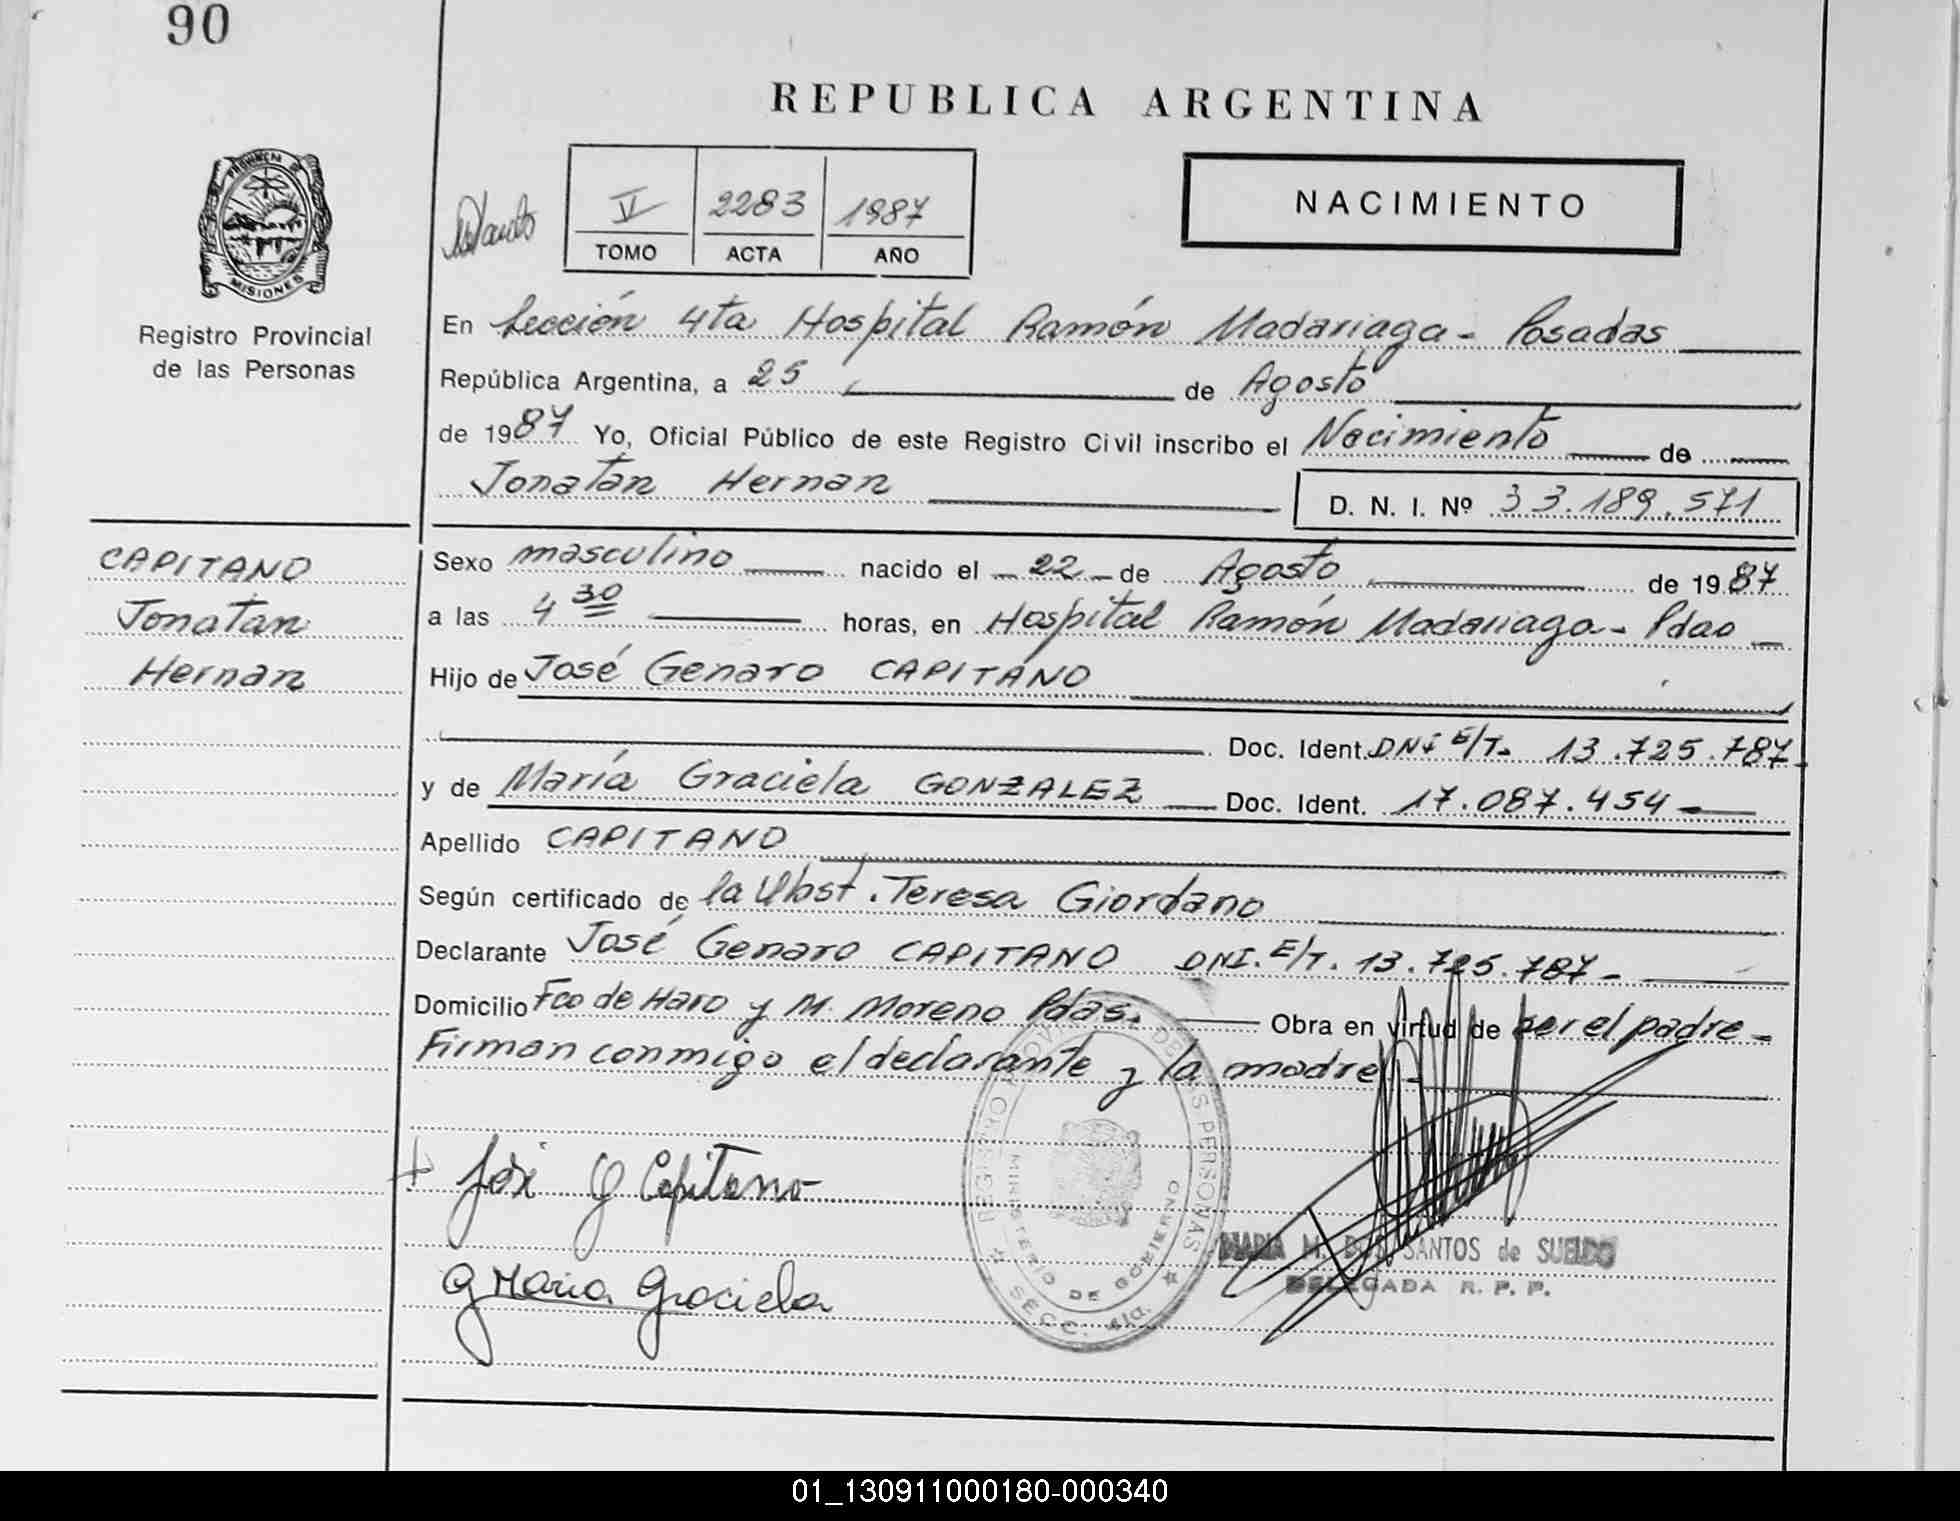 90
REPUBLICA ARGENTINA
PROVINCIA DE
MISIONES
Registro Provincial
de las Personas
V 2283 1987
TOMO ACTA AÑO
NACIMIENTO
En Sección 4ta Hospital Ramón Madariaga - Posadas
República Argentina, a 25 de Agosto
de 1987 Yo, Oficial Público de este Registro Civil inscribo el Nacimiento de
Jonatan Hernan D. N. I. Nº 33.189.571
CAPITANO
Jonatan
Hernan
Sexo masculino nacido el 22 de Agosto de 1987
a las 4 30 horas, en Hospital Ramón Madariaga - Pdas
Hijo de José Genaro CAPITANO
Doc. Ident. DNI E/T. 13.725.787-
y de María Graciela GONZALEZ Doc. Ident. 17.087.454
Apellido CAPITANO
Según certificado de la Obst. Teresa Giordano
Declarante José Genaro CAPITANO DNI. E/T. 13.725.787-
Domicilio Fco de Haro y M. Moreno Pdas. Obra en virtud de ser el padre -
Firman conmigo el declarante y la madre -
José G Capitano
G Maria Graciela
REGISTRO PROVINCIAL DE LAS PERSONAS
MINISTERIO DE GOBIERNO
SECC. 4ta.
MARIA M. DOS SANTOS de SUELDO
DELEGADA R. P. P.
01_130911000180-000340